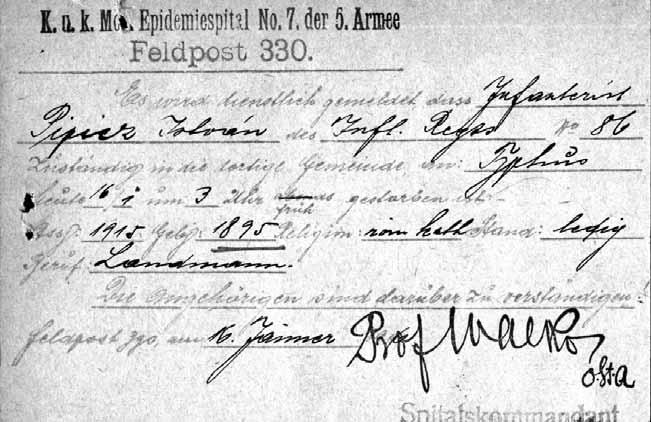 K. u. k. Mob. Epidemiespital No. 7. der 5. Armee
Feldpost 330.
Es wird dienstlich gemeldet, dass Infanterist
Pipicz István des Inft. Regts No 86
Zuständig in die dortige Gemeinde, an: Typhus
heute 16/I um 3 Uhr abends gestorben ist.
früh
Assj: 1915 Gebj: 1895 Religion: röm kath Stand: ledig
Beruf: Landmann.
Die Angehörigen sind darüber zu verständigen.
Feldpost 330, am 16. Jänner
Prof Walko
OStA
Spitalskommandant